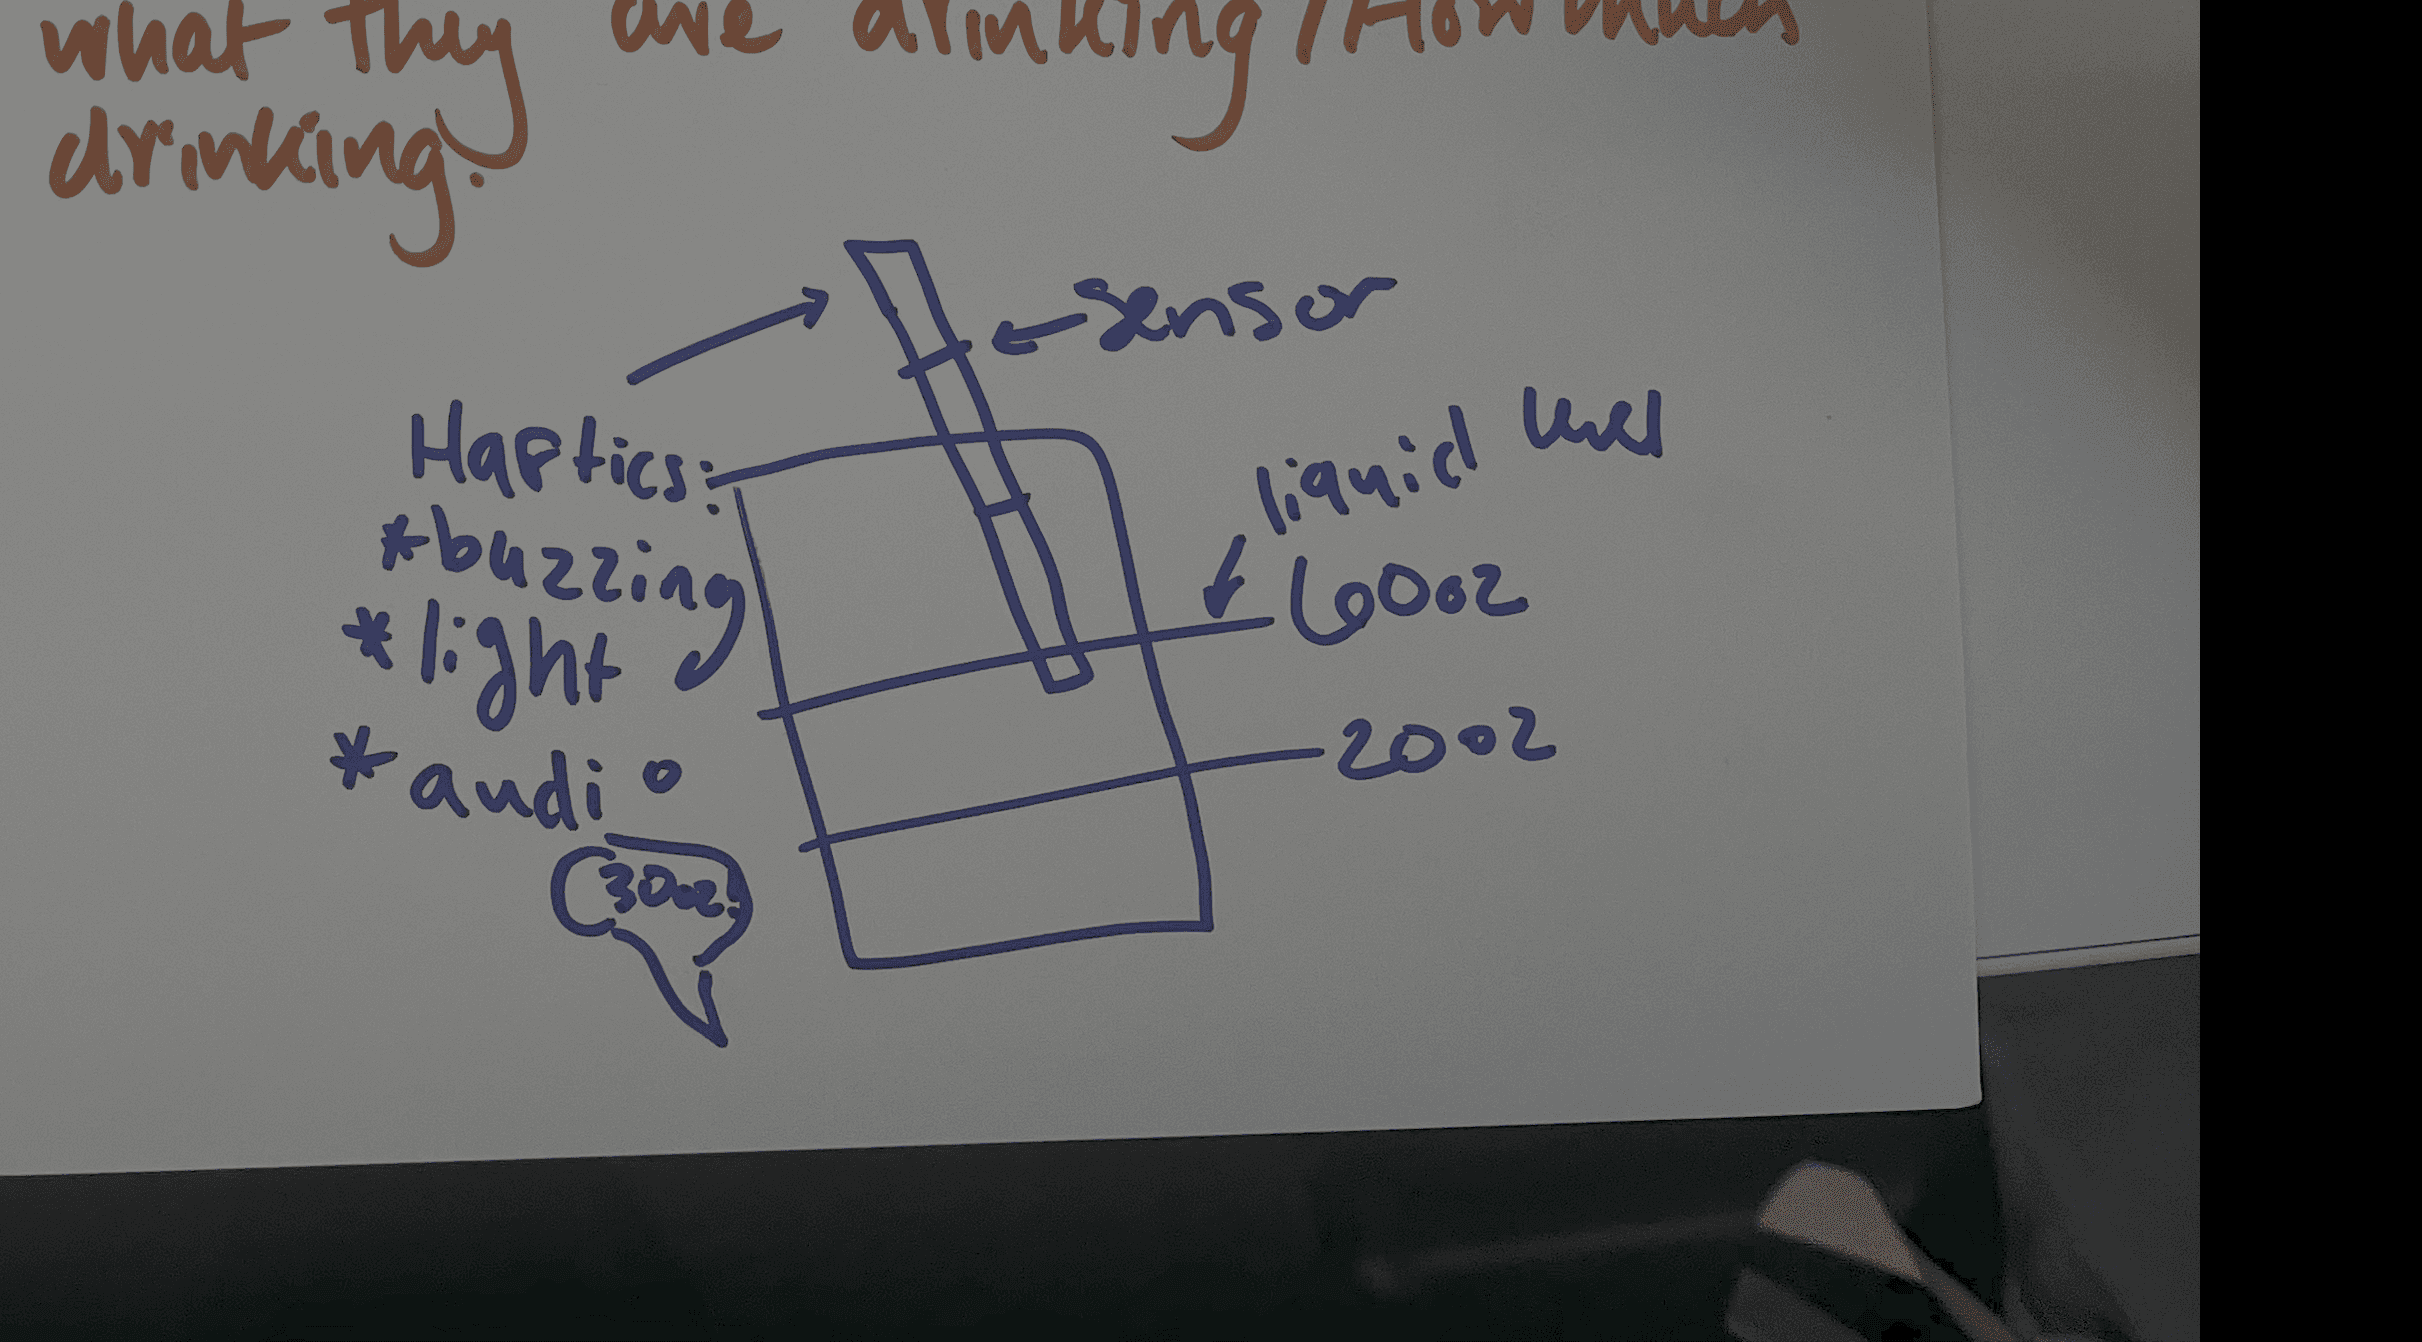 what they are drinking/How much
drinking.
sensor
liquid level
60oz
20oz
Haptics:
*buzzing
*light
*audio
30oz!